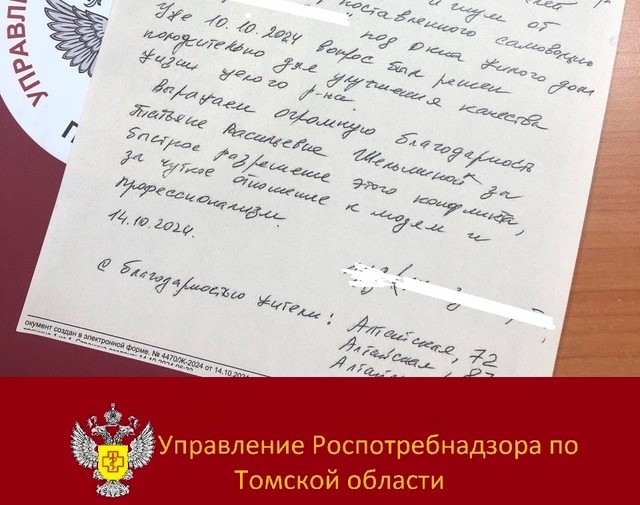 УПРАВЛ
и шум от
поставленного самовольно
Уже 10.10.2024 вопрос был решен
под окна жилого дома
положительно для улучшения качества
жизни целого р-на.
Выражаем огромную благодарность
Татьяне Васильевне Шельминой за
быстрое разрешение этого конфликта,
за чуткое отношение к людям и
профессионализм.
14.10.2024.
С благодарностью жители:
Алтайская, 72
Алтайская, 87
окумент создан в электронной форме. № 4470/Ж-2024 от 14.10.2024
Управление Роспотребнадзора по
Томской области